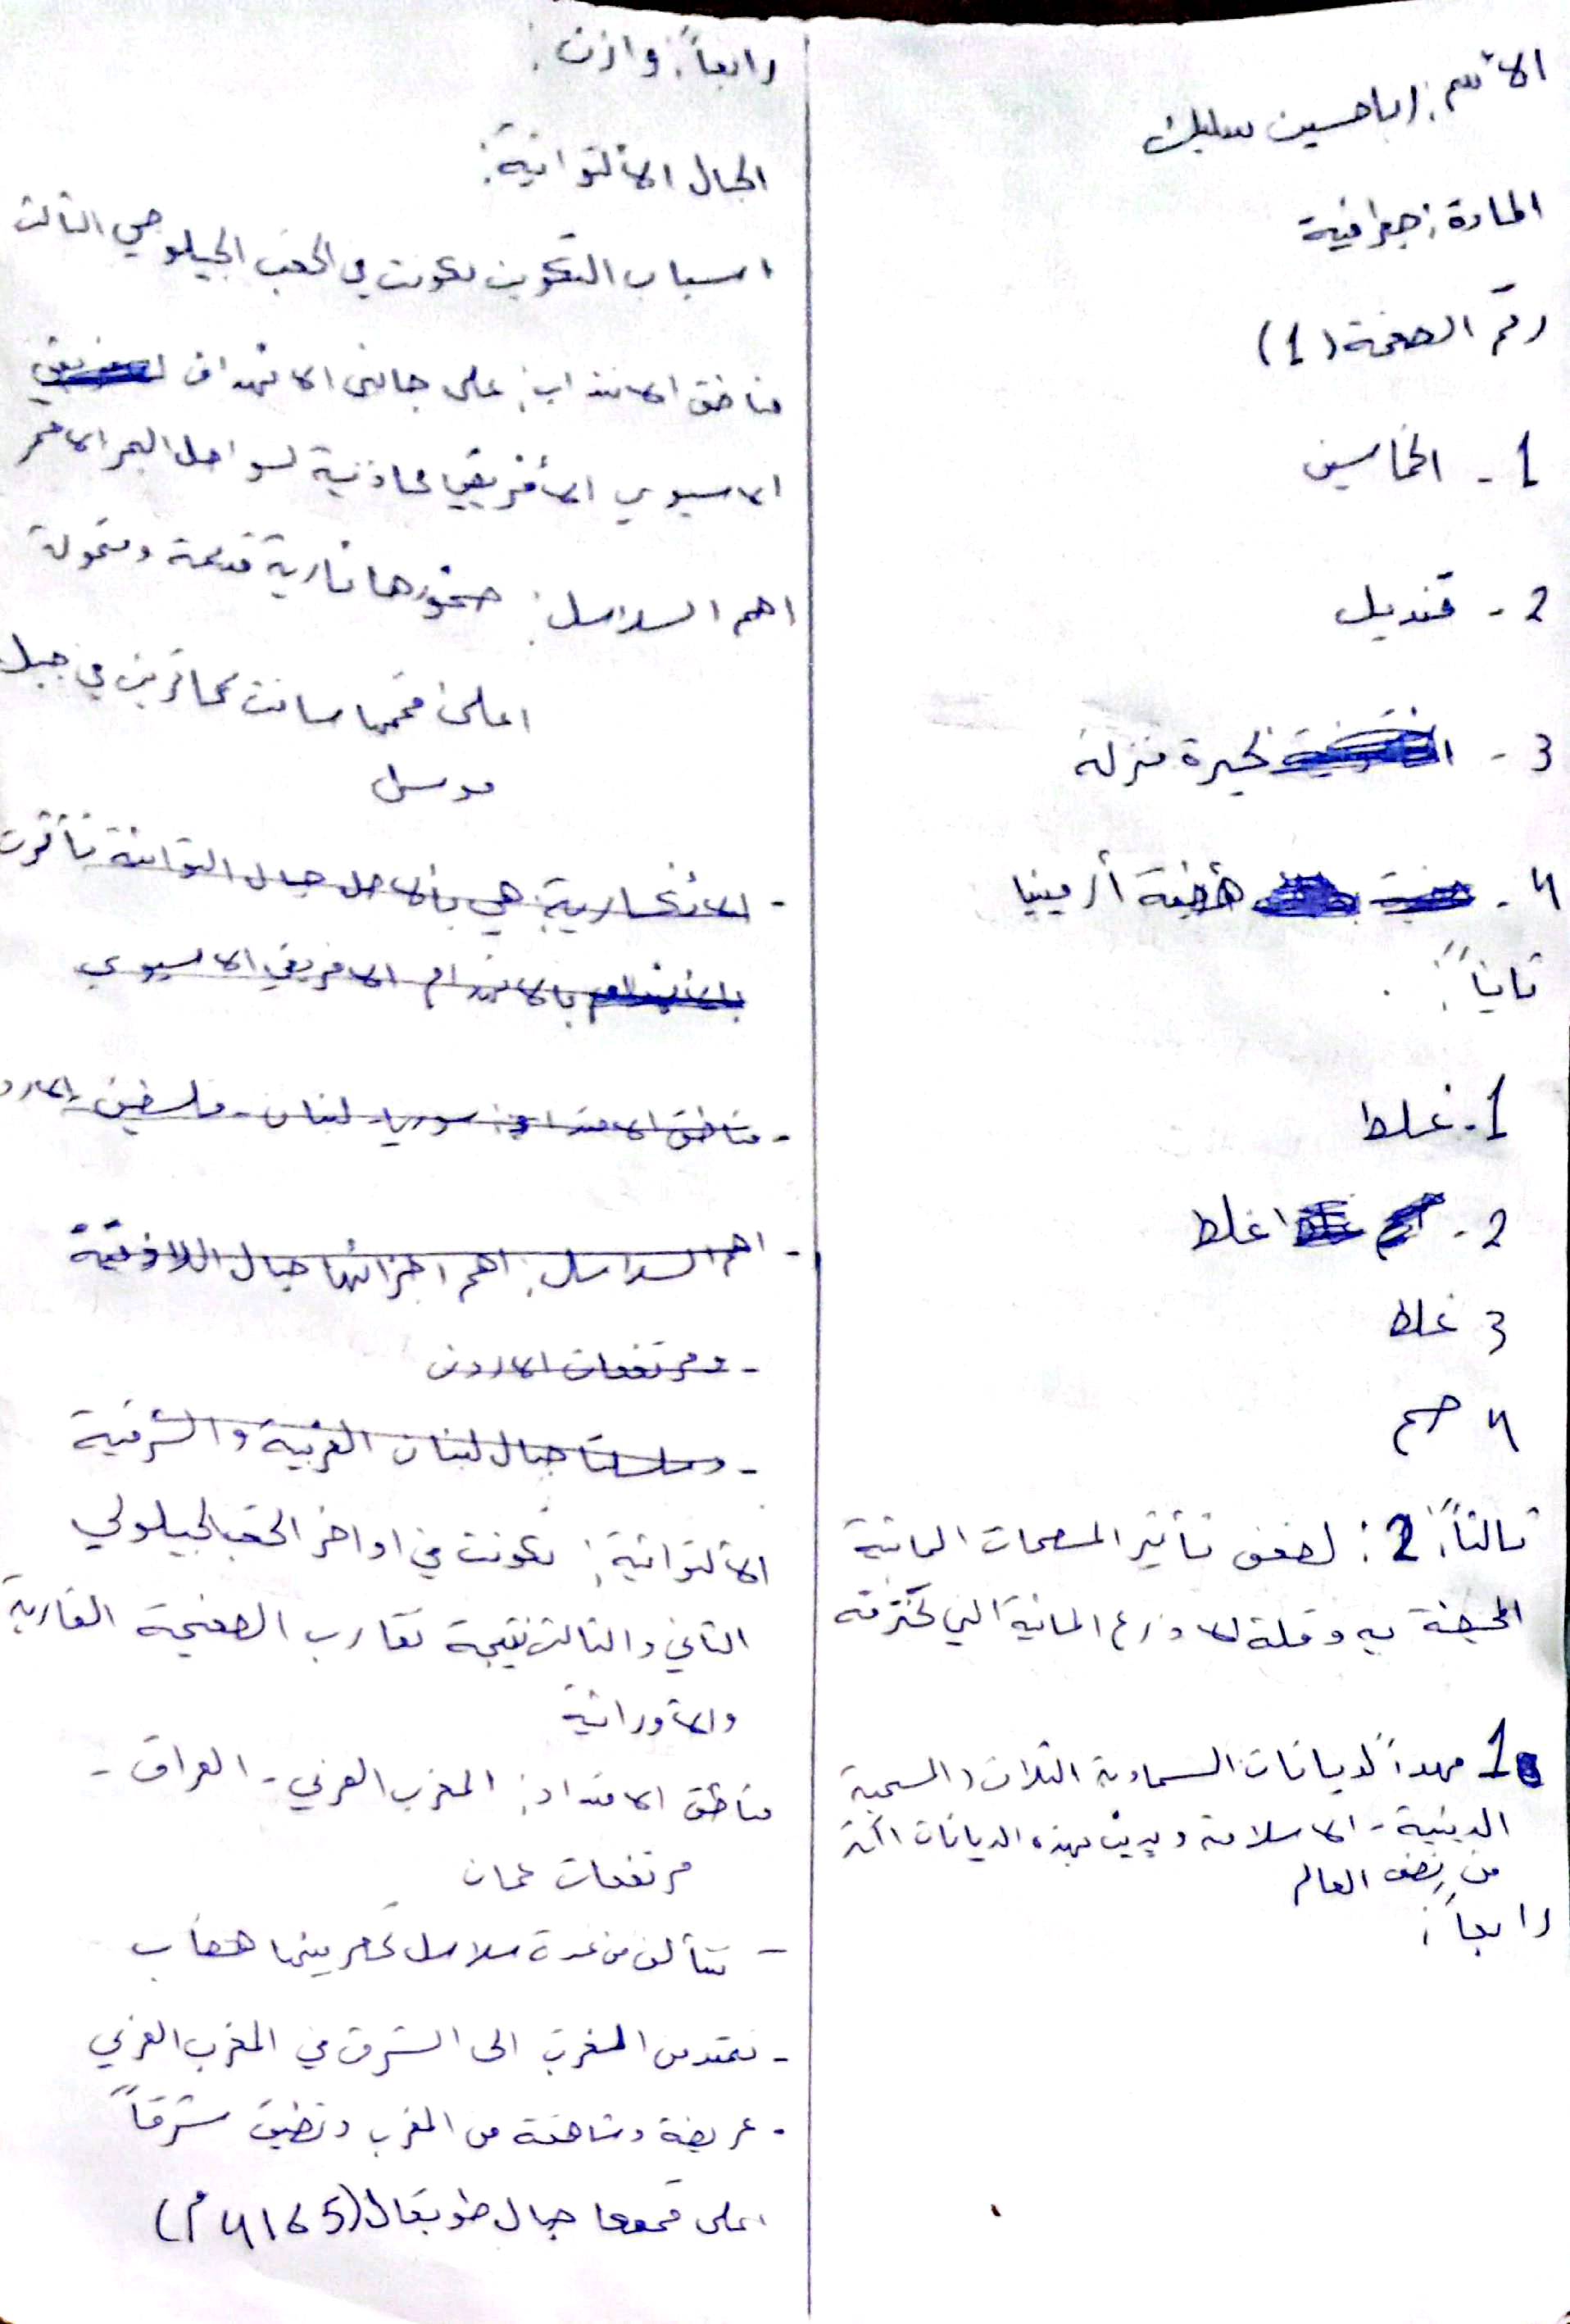 الاسم: ابا حسين سليك
المادة: جغرافية
رقم الصفحة (1)
1 - الخماسين
2 - قنديل
3 - بحيرة منزلة
4 - هضبة أرمينيا
ثانياً:
1 - غلط
2 - غلط
3 غلط
4 صح
ثالثاً: 2: لضعف تأثير المسطحات المائية
المحيطة به وقلة الاذرع المائية التي تخترقه
1 مهداً لديانات السماوية الثلاث (المسيحية
الدينية - الاسلامية ويدين بهذه الديانات اكثر
من نصف العالم
رابعاً:
رابعاً: وازن:
الجبال الالتوائية:
اسباب التكوين تكونت في الحقب الجيلوجي الثالث
مناطق الامتداد: على جانبي الانهدام
الاسيوي الأفريقي محاذية لسواحل البحر الاحمر
اهم السلاسل: صخورها نارية قديمة ومتحولة
اعلى قممها سانت كاترين في جبل
موسى
- الأنكسارية: هي بالاصل جبال التوائية تأثرت
بالانهدام الافريقي الاسيوي
- مناطق الامتداد: سوريا - لبنان - فلسطين - الارد
- اهم السلاسل: اهم اجزائها جبال اللاذقية
- ومرتفعات الاردن
- وسلسلتا جبال لبنان الغربية والشرقية
الالتوائية: تكونت في اواخر الحقب الجيلولي
الثاني والثالث نتيجة تقارب الصفيحة القارية
والاوراتية
مناطق الامتداد: المغرب العربي - العراق -
مرتفعات عمان
- تتألف من عدة سلاسل تحصر بينها هضاب
- تمتد من المغرب الى الشرق في المغرب العربي
- عريضة وشاهقة من المغرب وتضيق شرقاً
اعلى قممها جبال طوبقال (4165 م)